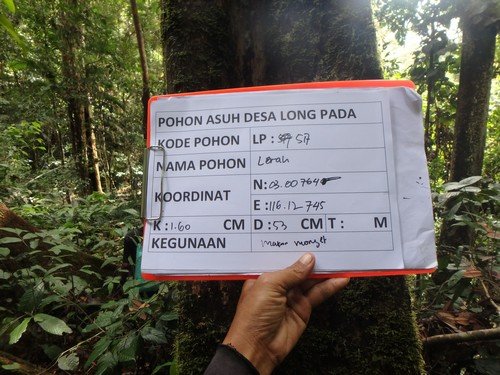 POHON ASUH DESA LONG PADA
KODE POHON LP : 57
NAMA POHON Lerak
KOORDINAT N: 03.00764
E : 116.12 745
K : 1.60 CM D : 53 CM T : M
KEGUNAAN Makan monyet